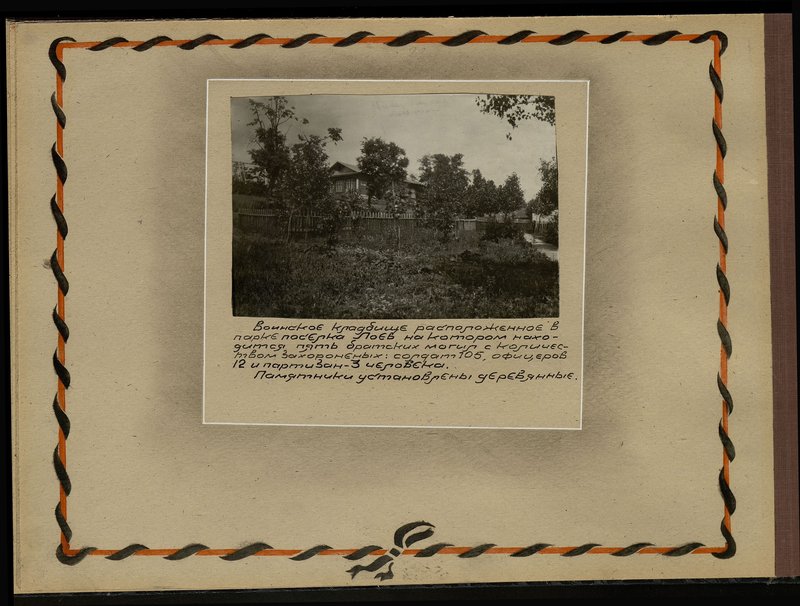 Воинское кладбище расположенное в
парке посёлка Лоев на котором нахо-
дится пять братских могил с количес-
твом захороненых: солдат 105, офицеров
12 и партизан-3 человека.
Памятники установлены деревянные.